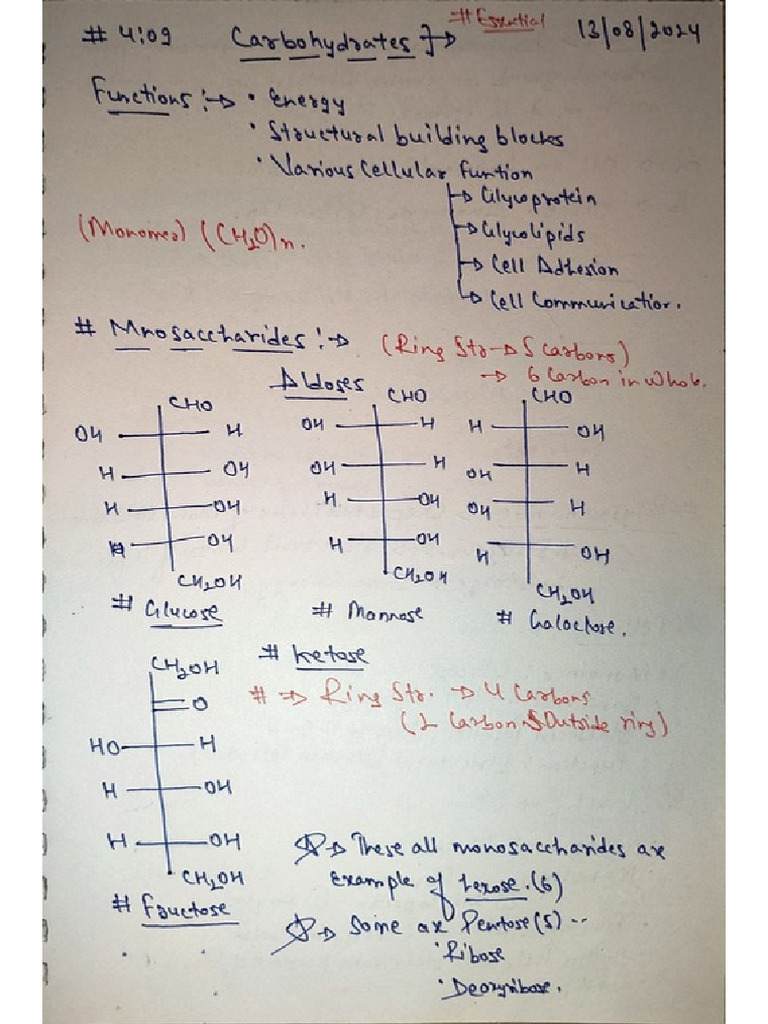 # 4:09 Carbohydrates }→ # Essential 13/08/2024
Functions :→ • Energy
• Structural building blocks
• Various Cellular Funtion
→ Glycoprotein
→ Glycolipids
→ Cell Adhesion
→ Cell Communication.
(Monomer) (CH2O)n.
# Mnosaccharides :→ (Ring Str → 5 Carbons)
→ 6 Carbon in Whole.
Aldoses
CHO CHO CHO
OH H OH H H OH
H OH OH H OH H
H OH H OH OH H
H OH H OH H OH
CH2OH CH2OH CH2OH
# Glucose # Mannose # Galactose.
CH2OH # Ketose
O # ⇒ Ring Str. → 4 Carbons
(2 Carbons Outside ring)
HO H
H OH
H OH
CH2OH
# Fructose
→ These all monosaccharides are
Example of Hexose.(6)
→ Some are Pentose(5) --
• Ribose
• Deoxyribose.